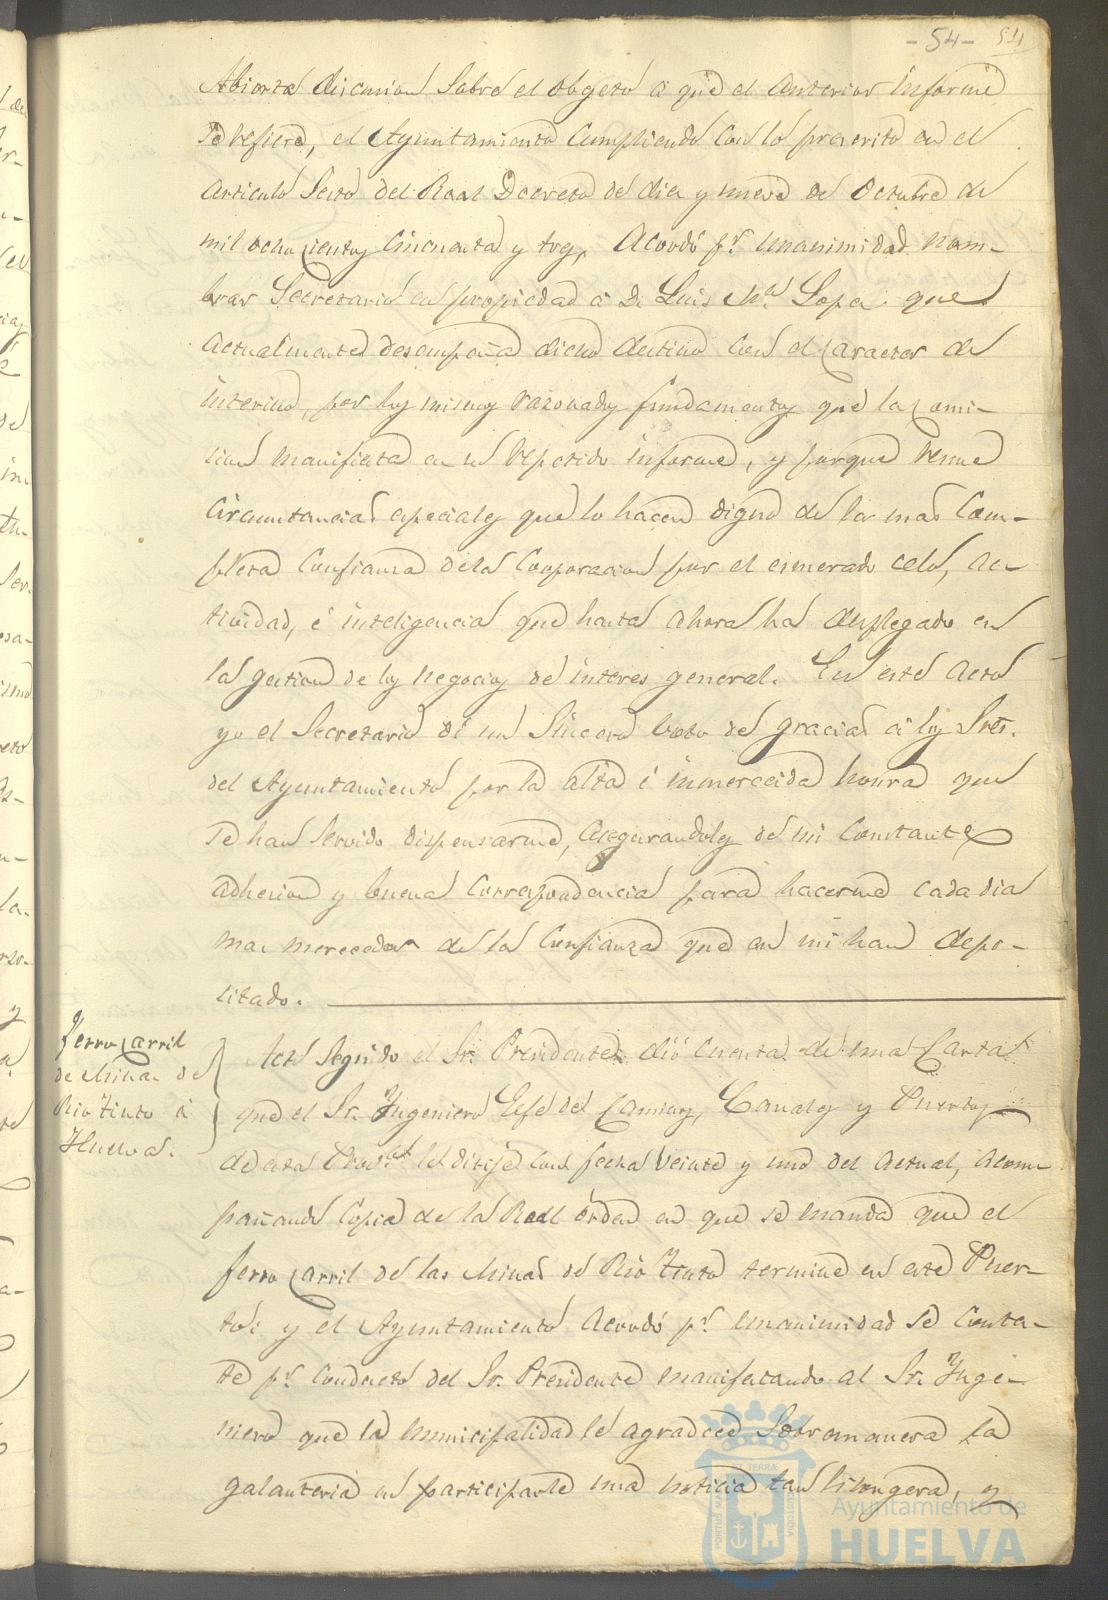 -54- 54
Abierta discusion sobre el obgeto á que el anterior informe
se refiere, el Ayuntamiento cumpliendo con lo prescrito en el
articulo sesto del Real Decreto de diez y nueve de Octubre de
mil ochocientos cincuenta y tres, Acordó pr. unanimidad nom-
brar Secretario en propiedad á Dn. Luis Ma. Lopez que
actualmente desempeña dicho destino con el caracter de
interino, por los mismos razonados fundamentos que la comi-
sion manifiesta en su repetido informe, y porque reune
circunstancias especiales que lo hacen digno de la mas com-
pleta confianza de la Corporacion por el esmerado celo, ac-
tividad, é inteligencia que hasta ahora ha desplegado en
la gestion de los negocios de interes general. En este acto
yo el Secretario dí un sincero voto de gracias á los Sres.
del Ayuntamiento por la alta é inmerecida honra que
se han servido dispensarme, asegurandoles de mi constante
adhesion y buena correspondencia para hacerme cada dia
mas merecedor de la confianza que en mi han depo-
sitado.
Ferro carril
de Minas de
Rio Tinto á
Huelva.
Acto seguido el Sr. Presidente dió cuenta de una carta
que el Sr. Ingeniero Gefe de Caminos, Canales y Puertos
de esta Provcia. le dirije con fecha veinte y uno del actual, acom-
pañando copia de la Real órden en que se manda que el
ferro carril de las Minas de Rio Tinto termine en este Puer-
to: y el Ayuntamiento Acordó pr. unanimidad se contes-
te pr. conducto del Sr. Presidente manifestando al Sr. Inge-
niero que la municipalidad le agradece sobremanera la
galanteria en participarle una noticia tan lisongera, y
PORTUS MARIS ET TERRAE CUSTODIA
Ayuntamiento de
HUELVA